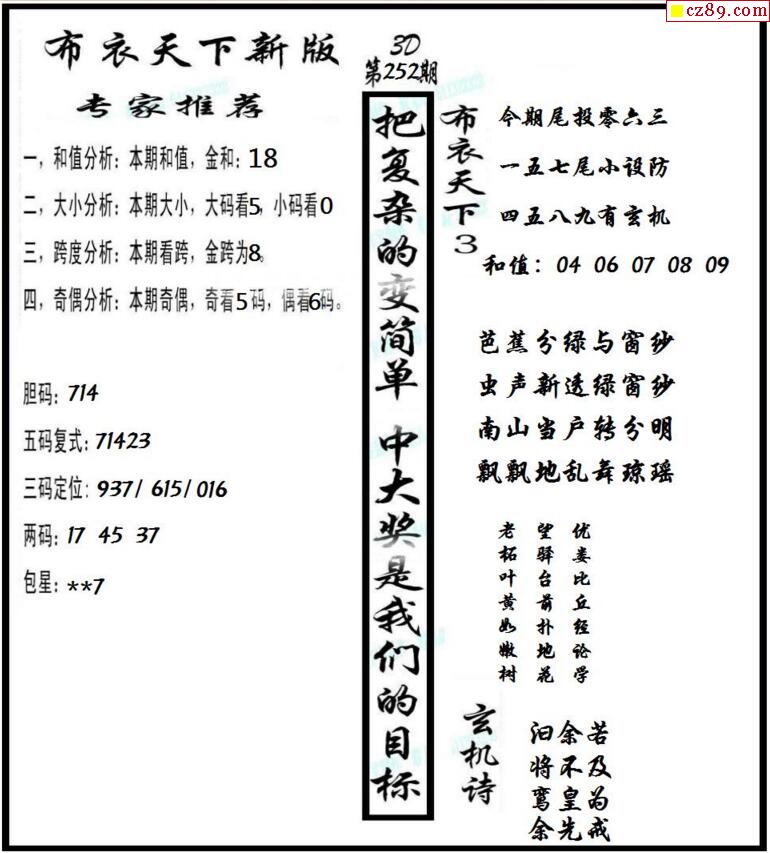 cz89.com
布衣天下新版
专家推荐
一，和值分析：本期和值，金和：18
二，大小分析：本期大小，大码看5，小码看0
三，跨度分析：本期看跨，金跨为8。
四，奇偶分析：本期奇偶，奇看5码，偶看6码。
胆码：714
五码复式：71423
三码定位：937/ 615/ 016
两码：17 45 37
包星：**7
3D
第252期
把复杂的变简单 中大奖是我们的目标
布衣天下3
今期尾投零六三
一五七尾小设防
四五八九有玄机
和值：04 06 07 08 09
芭蕉分绿与窗纱
虫声新透绿窗纱
南山当户转分明
飘飘地乱舞琼瑶
老柘叶黄如嫩树
望驿台前扑地花
优娄比丘经论学
玄机诗
汩余若
将不及
鸾皇为
余先戒